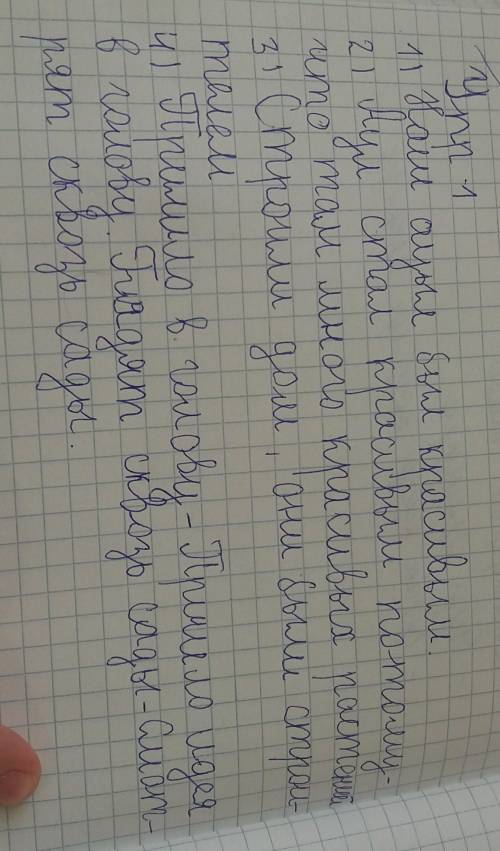 Упр 1
1) Наш аул был красивым.
2) Аул стал красивым потому-
что там много красивых растений
3) Строили дом, они были
талем
4) Пришло в голову - Пришло идея
в голову. Глядят сквозь сады - Смот-
рят сквозь сады.